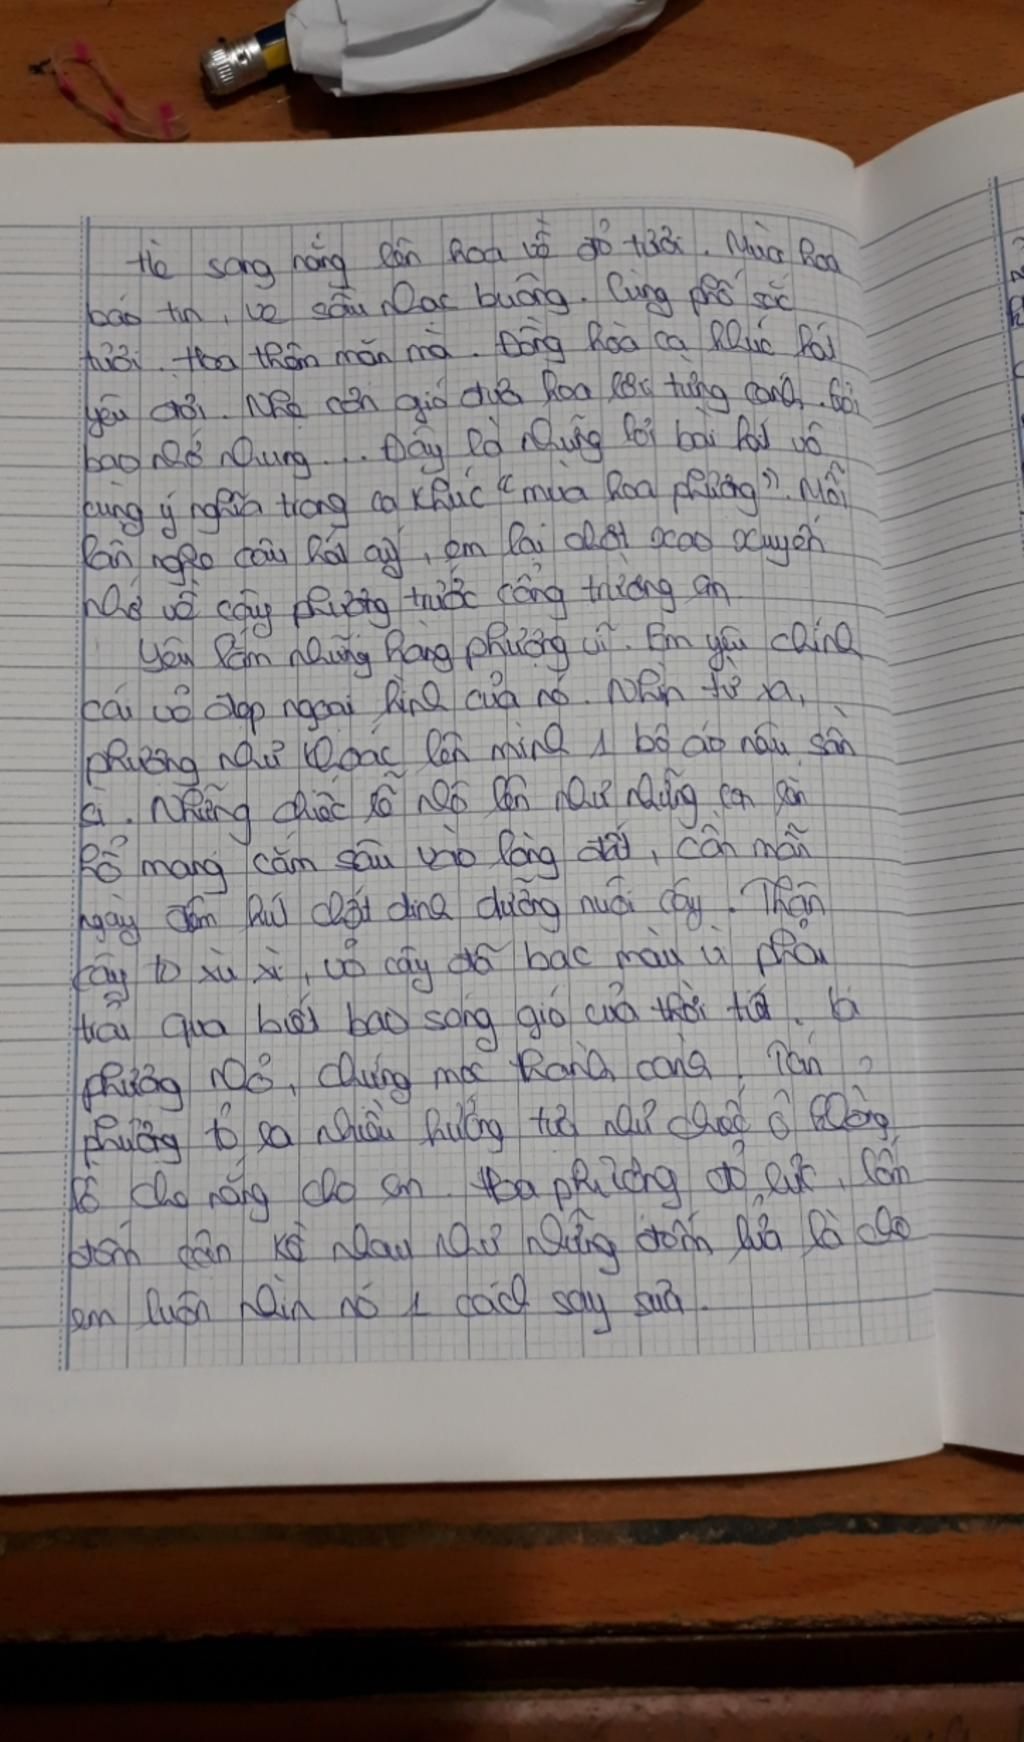 Hè sang nắng lên hoa về đỏ tươi. Mùa hoa
báo tin, ve sầu nhạc buông. Cùng phố sắc
tươi. Hoa thắm mặn mà. Đồng hòa ca khúc hát
yêu đời. Nhẹ cơn gió đưa hoa lắc từng cành. Gợi
bao nhớ nhung... Đây là những lời bài hát vô
cùng ý nghĩa trong ca khúc "mùa hoa phượng". Mỗi
lần nghe câu hát ấy, em lại chợt xao xuyến
nhớ về cây phượng trước cổng trường em
Yêu lắm những hàng phượng vĩ. Em yêu chính
cái vẻ đẹp ngoại hình của nó. Nhìn từ xa,
phượng như khoác lên mình 1 bộ áo nâu sần
sì. Những chiếc rễ nhô lên như những con rắn
hổ mang cắm sâu vào lòng đất, cần mẫn
ngày đêm hút chất dinh dưỡng nuôi cây. Thân
cây to xù xì, vỏ cây đã bạc màu vì phải
trải qua biết bao sóng gió của thời tiết. Lá
phượng nhỏ, chúng mọc thành cành. Tán
phượng tỏ ra nhiều hướng tựa như chiếc ô khổng
lồ che nắng cho em. Hoa phượng đỏ rực, lốm
đốm gần kề nhau như những đốm lửa là cho
em luôn nhìn nó 1 cách say sưa.